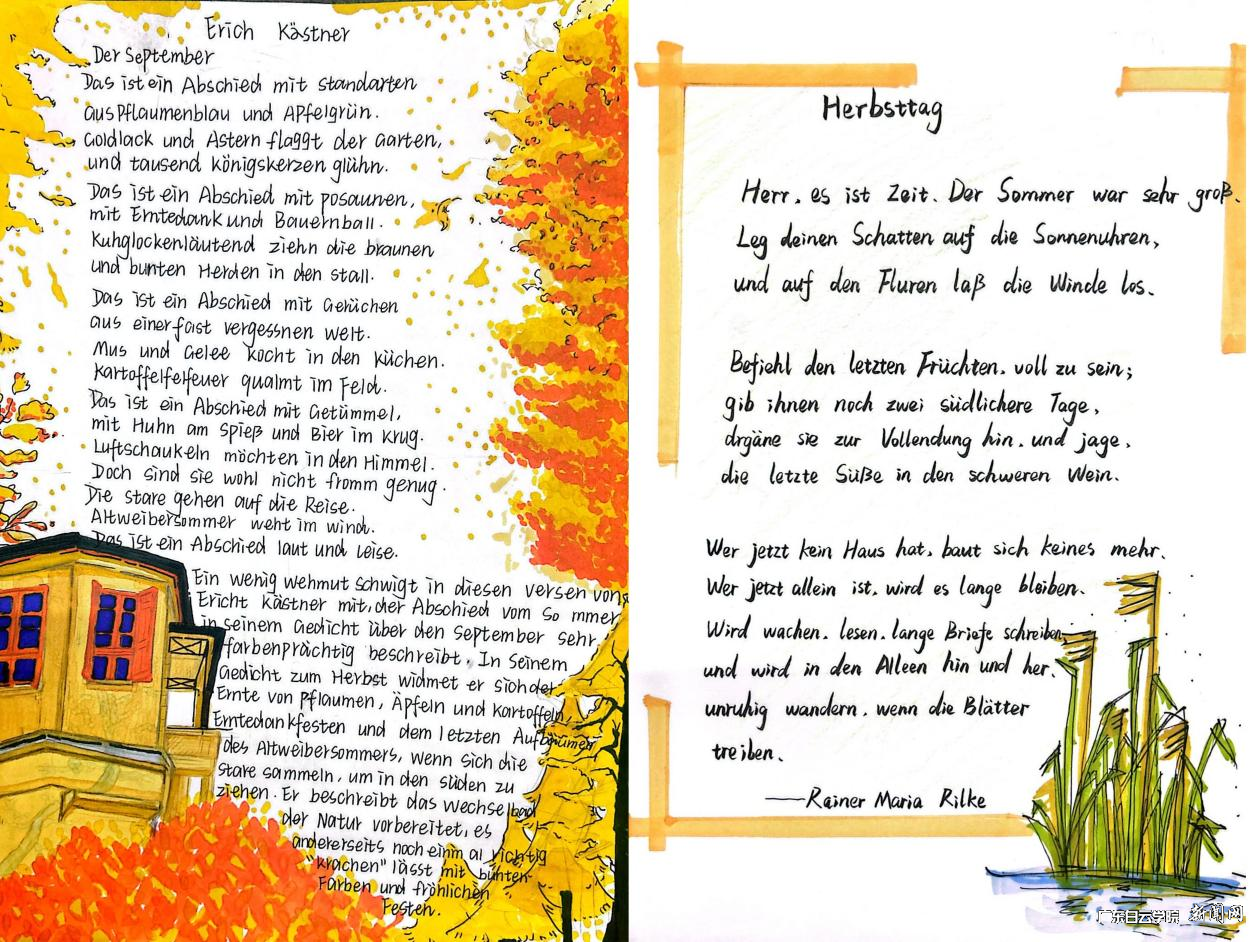 Erich Kästner
Der September
Das ist ein Abschied mit standarten
aus Pflaumenblau und Apfelgrün.
Goldlack und Astern flaggt der Garten,
und tausend Königskerzen glühn.
Das ist ein Abschied mit posaunen,
mit Erntedank und Bauernball.
Kuhglockenläutend ziehn die braunen
und bunten Herden in den stall.
Das ist ein Abschied mit Gerüchen
aus einer fast vergessnen welt.
Mus und Gelee kocht in den Küchen.
Kartoffelfelfeuer qualmt im Feld.
Das ist ein Abschied mit Getümmel,
mit Huhn am Spieß und Bier im Krug.
Luftschaukeln möchten in den Himmel.
Doch sind sie wohl nicht fromm genug.
Die stare gehen auf die Reise.
Altweibersommer weht im wind.
Das ist ein Abschied laut und Leise.
Ein wenig wehmut schwigt in diesen versen von
Ericht Kästner mit, der Abschied vom So mmer
in seinem Gedicht über den september sehr
farbenprächtig beschreibt. In Seinem
Gedicht zum Herbst widmet er sich der
Ernte von Pflaumen, Äpfeln und Kartoffeln,
Erntedankfesten und dem letzten Aufbäumen
des Altweibersommers, wenn sich die
stare sammeln, um in den süden zu
ziehen. Er beschreibt das wechselbad
der Natur vorbereitet, es
andererseits noch einm al richtig
"krachen" lässt mit bunten
Farben und fröhlichen
Festen.
Herbsttag
Herr, es ist Zeit. Der Sommer war sehr groß.
Leg deinen Schatten auf die Sonnenuhren,
und auf den Fluren laß die Winde los.
Befiehl den letzten Früchten, voll zu sein;
gib ihnen noch zwei südlichere Tage,
drgäne sie zur Vollendung hin, und jage,
die letzte Süße in den schweren Wein.
Wer jetzt kein Haus hat, baut sich keines mehr.
Wer jetzt allein ist, wird es lange bleiben.
Wird wachen, lesen, lange Briefe schreiben
und wird in den Alleen hin und her,
unruhig wandern, wenn die Blätter
treiben.
——Rainer Maria Rilke
广东白云学院 新闻网